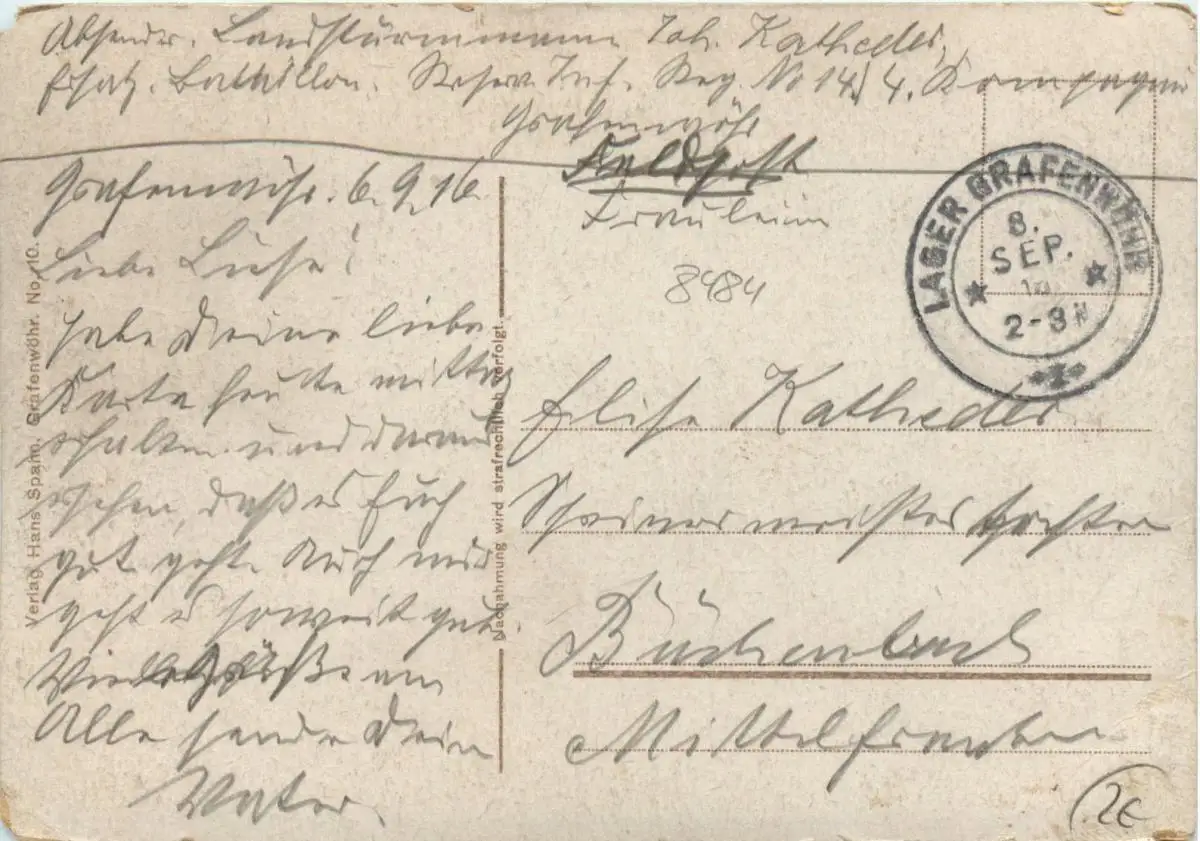 Absender. Landsturmmann Joh. Katheder,
Ersatz. Bataillon. Reserv. Inf. Reg. No 14/4. Kompagnie
Grafenwöhr
Feldpost
Grafenwöhr. 6.9.16.
Liebe Liese!
habe Deine liebe
Karte heute mittag
erhalten und daraus
ersehen, daß es Euch
gut geht. Auch mir
geht es soweit gut.
Viele Grüße an
Alle sendet Dein
Vater.
Fräulein
8484
Elise Katheder
Schreinermeisters
Büchenbach
Mittelfranken
LAGER GRAFENWÖHR
8.
SEP.
2-3N
*I*
Verlag Hans Spahn. Grafenwöhr. No. 10.
Nachahmung wird strafrechtlich verfolgt.
2€